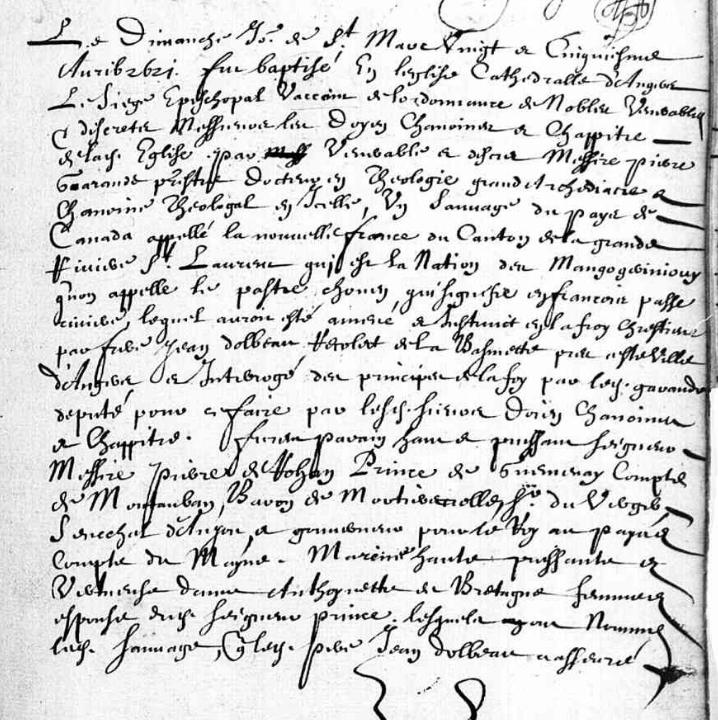 Le Dimanche Jor de St Marc Vingt et Cinquiesme
Avril 1621. fut baptisé En leglise Cathedralle d'Angers
Le Siege Episcopal Vaccant de lordonnance de Nobles Venerables
& discretes Messieurs les Doyen Chanoines et Chappitre
de lad. Eglise par Venerable et discret Messire pierre
Garande prestre Docteur en Theologie grand Archediacre et
Chanoine Theologal en Icelle, Un Sauvage du pays de
Canada appellé la nouvelle france du Canton de la grande
Riviere St Laurent qui est la Nation des
quon appelle le pastre chouen, qui signifie en francois passe
riviere lequel auroit esté amené et Instruit en la foy Chrestienne
par frere Jean dolbeau Recolect de la Basmette pres ceste Ville
d'Angers et Interogé des principes de la foy par led. garande
deputé pour ce faire par lesd. sieurs Doien Chanoines
et Chappitre. furent parain haut et puissant seigneur
Messire pierre de Rohan Prince de Guemenay Compte
de Montauban, Baron de Mortiercrolles Sr du Vergier
Senechal d'Anjou, et gouverneur pour le Roy au pays et
Compte du Mayne. Mareine haute puissante et
Vertueuse dame Anthoynette de Bretagne femme et
espouse dud. seigneur prince. lesquels ont Nommé
led. sauvage, & led. pere Jean dolbeau a asseuré